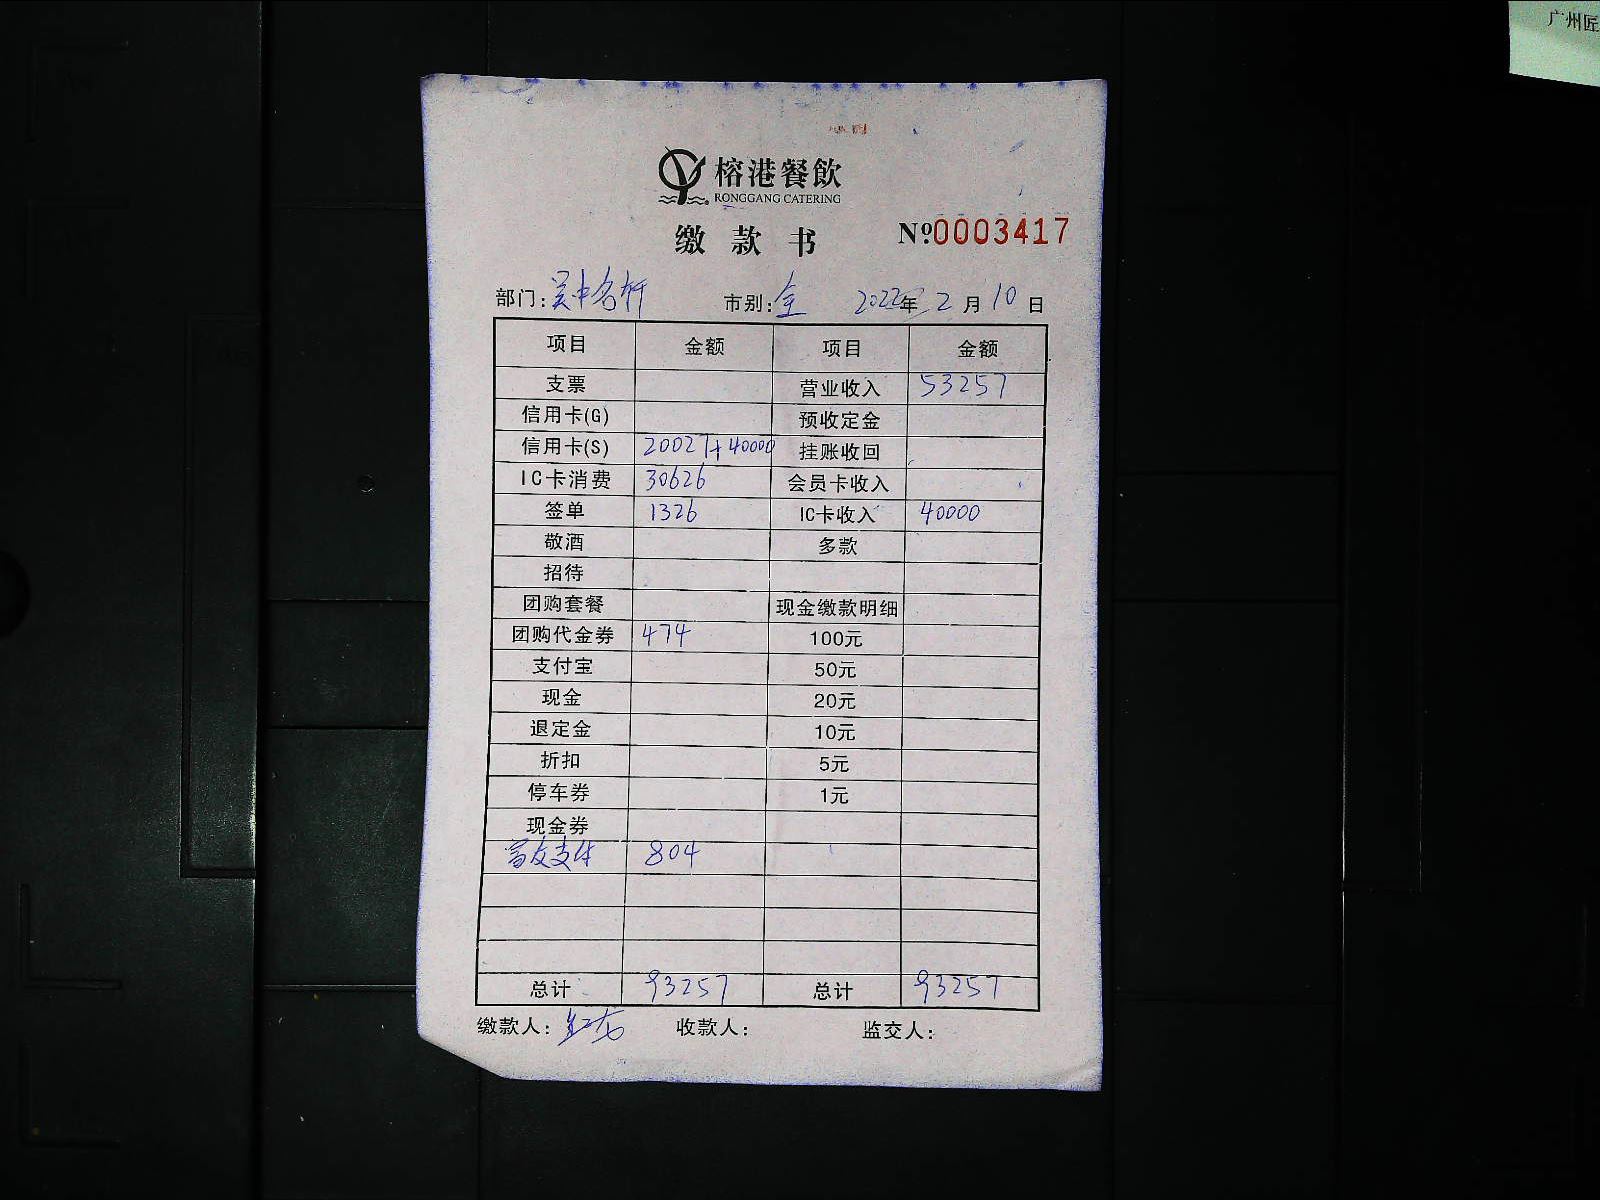 广州匠
榕港餐飲
RONGGANG CATERING
缴款书 №0003417
部门:吴中名轩 市别:全 2022年2月10日
项目 金额 项目 金额
支票 营业收入 53257
信用卡(G) 预收定金
信用卡(S) 20027+40000 挂账收回
IC卡消费 30626 会员卡收入
签单 1326 IC卡收入 40000
敬酒 多款
招待
团购套餐 现金缴款明细
团购代金券 474 100元
支付宝 50元
现金 20元
退定金 10元
折扣 5元
停车券 1元
现金券
支付 804
总计 93257 总计 93257
缴款人: 收款人: 监交人: